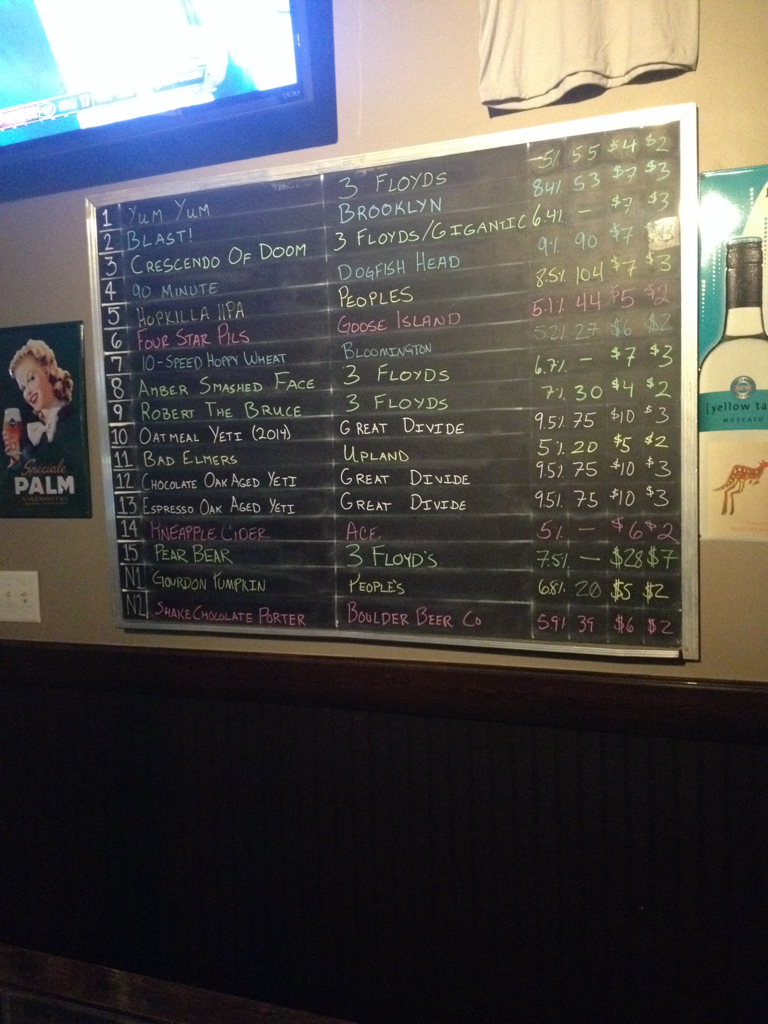 1 YUM YUM 3 FLOYDS 5% 55 $4 $2
2 BLAST! BROOKLYN 8.4% 53 $7 $3
3 CRESCENDO OF DOOM 3 FLOYDS/GIGANTIC 6.4% - $7 $3
4 90 MINUTE DOGFISH HEAD 9% 90 $7
5 HOPKILLA IIPA PEOPLES 8.5% 104 $7 $3
6 FOUR STAR PILS GOOSE ISLAND 5.1% 44 $5 $2
7 10-SPEED HOPPY WHEAT BLOOMINGTON 5.2% 27 $6 $2
8 AMBER SMASHED FACE 3 FLOYDS 6.7% - $7 $3
9 ROBERT THE BRUCE 3 FLOYDS 7% 30 $4 $2
10 OATMEAL YETI (2014) GREAT DIVIDE 9.5% 75 $10 $3
11 BAD ELMERS UPLAND 5% 20 $5 $2
12 CHOCOLATE OAK AGED YETI GREAT DIVIDE 9.5% 75 $10 $3
13 ESPRESSO OAK AGED YETI GREAT DIVIDE 9.5% 75 $10 $3
14 PINEAPPLE CIDER ACE 5% - $6 $2
15 PEAR BEAR 3 FLOYD'S 7.5% - $28 $7
N1 GOURDON PUMPKIN PEOPLE'S 6.8% 20 $5 $2
N2 SHAKE CHOCOLATE PORTER BOULDER BEER CO 5.9% 39 $6 $2
Speciale
PALM
[yellow ta
MOSCATO